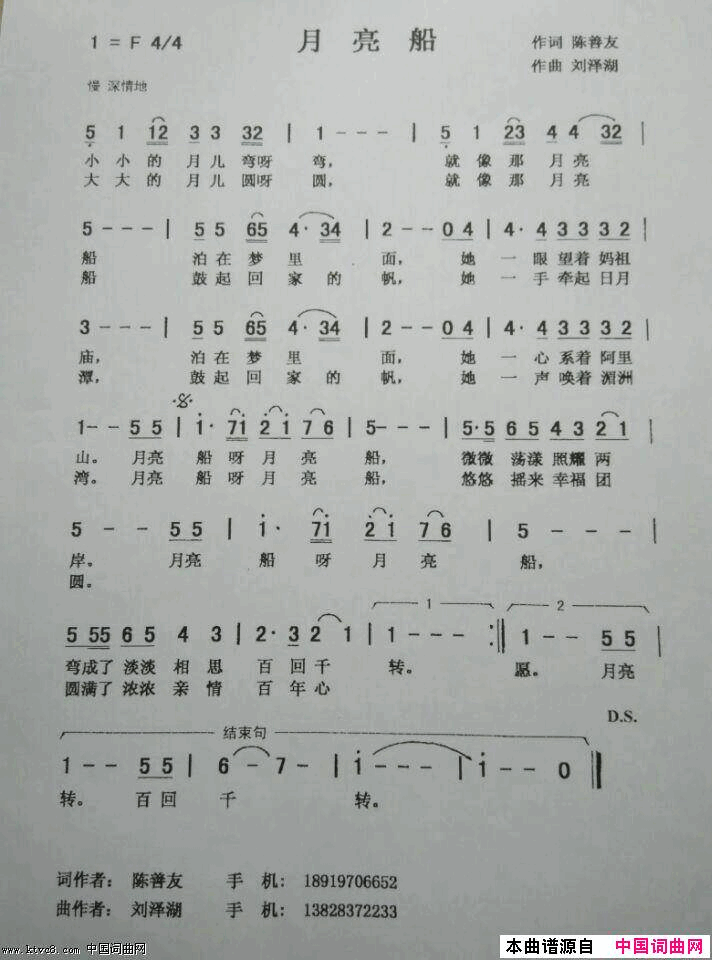 1 = F 4/4 月亮船 作词 陈善友
作曲 刘泽湖
慢 深情地
5 1 12 3 3 32 | 1 - - - | 5 1 23 4 4 32 |
小小的月儿弯呀弯， 就像那月亮
大大的月儿圆呀圆， 就像那月亮
5 - - - | 5 5 65 4· 34 | 2 - - 0 4 | 4· 4 3 3 3 2 |
船 泊在梦里面， 她一眼望着妈祖
船 鼓起回家的帆， 她一手牵起日月
3 - - - | 5 5 65 4· 34 | 2 - - 0 4 | 4· 4 3 3 3 2 |
庙， 泊在梦里面， 她一心系着阿里
潭， 鼓起回家的帆， 她一声唤着湄洲
1 - - 5 5 | 1· 71 2 1 7 6 | 5 - - - | 5·5 6 5 4 3 2 1 |
山。月亮船呀月亮船， 微微荡漾照耀两
湾。月亮船呀月亮船， 悠悠摇来幸福团
5 - - 5 5 | 1· 71 2 1 7 6 | 5 - - - |
岸。月亮船呀月亮船，
圆。
5 55 6 5 4 3 | 2· 3 2 1 | 1 - - - :|| 1 - - 5 5 |
1 2
弯成了淡淡相思百回千转。 愿。 月亮
圆满了浓浓亲情百年心
D.S.
结束句
1 - - 5 5 | 6 - 7 - | 1 - - - | 1 - - 0 ||
转。百回千转。
词作者： 陈善友 手 机： 18919706652
曲作者： 刘泽湖 手 机： 13828372233
www.ktvc8.com 中国词曲网
本曲谱源自 中国词曲网